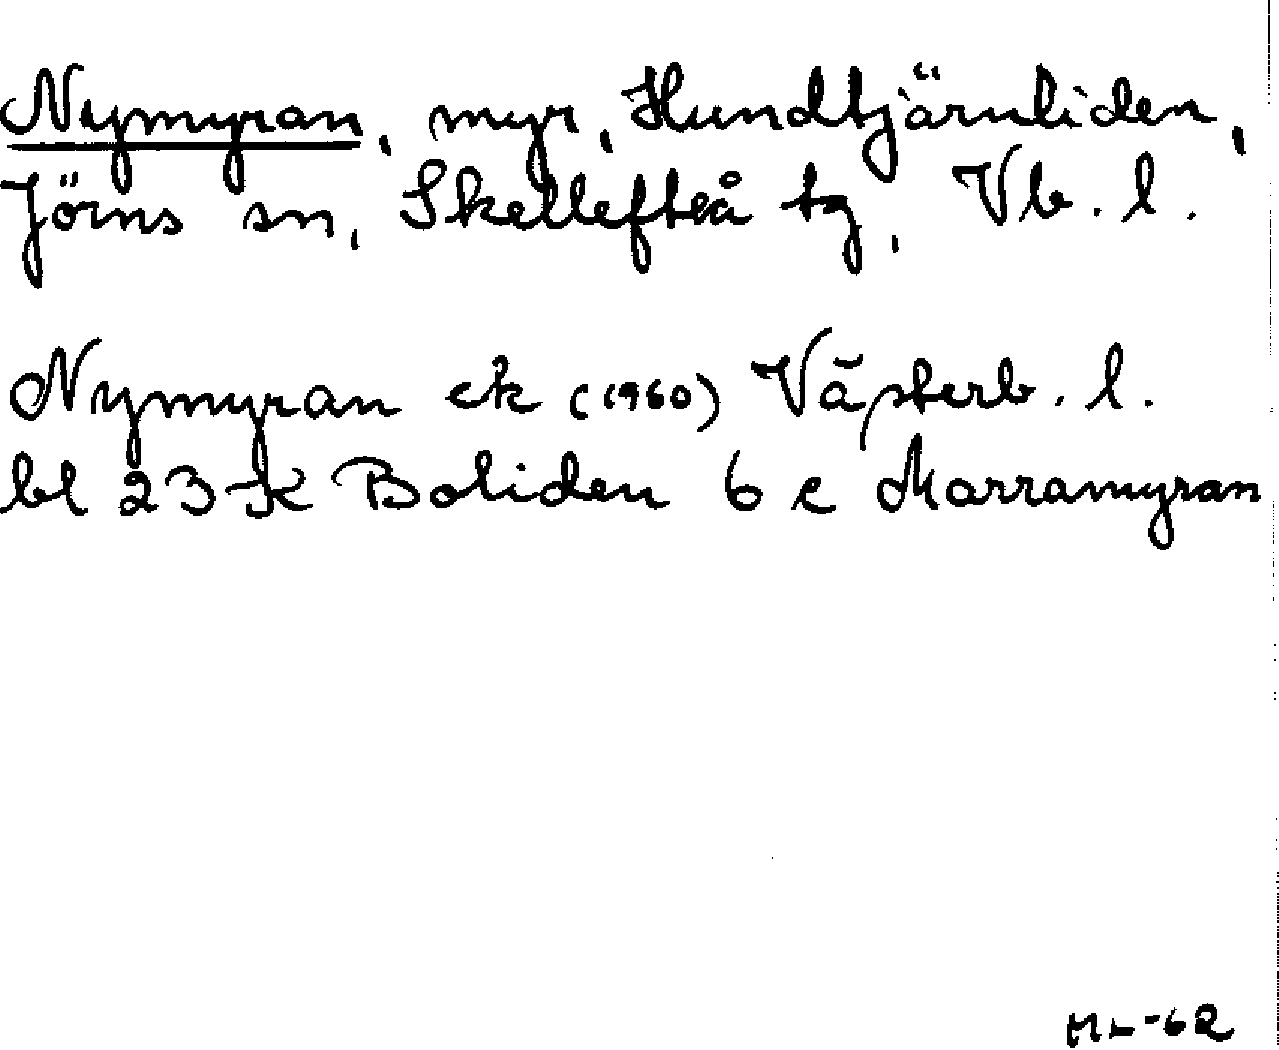 Nymyran, myr, Hundtjärnliden,
Jörns sn, Skellefteå tg, Vb. l.
Nymyran ek (1960) Västerb. l.
bl 23 K Boliden 6 e Morramyran
ML-62